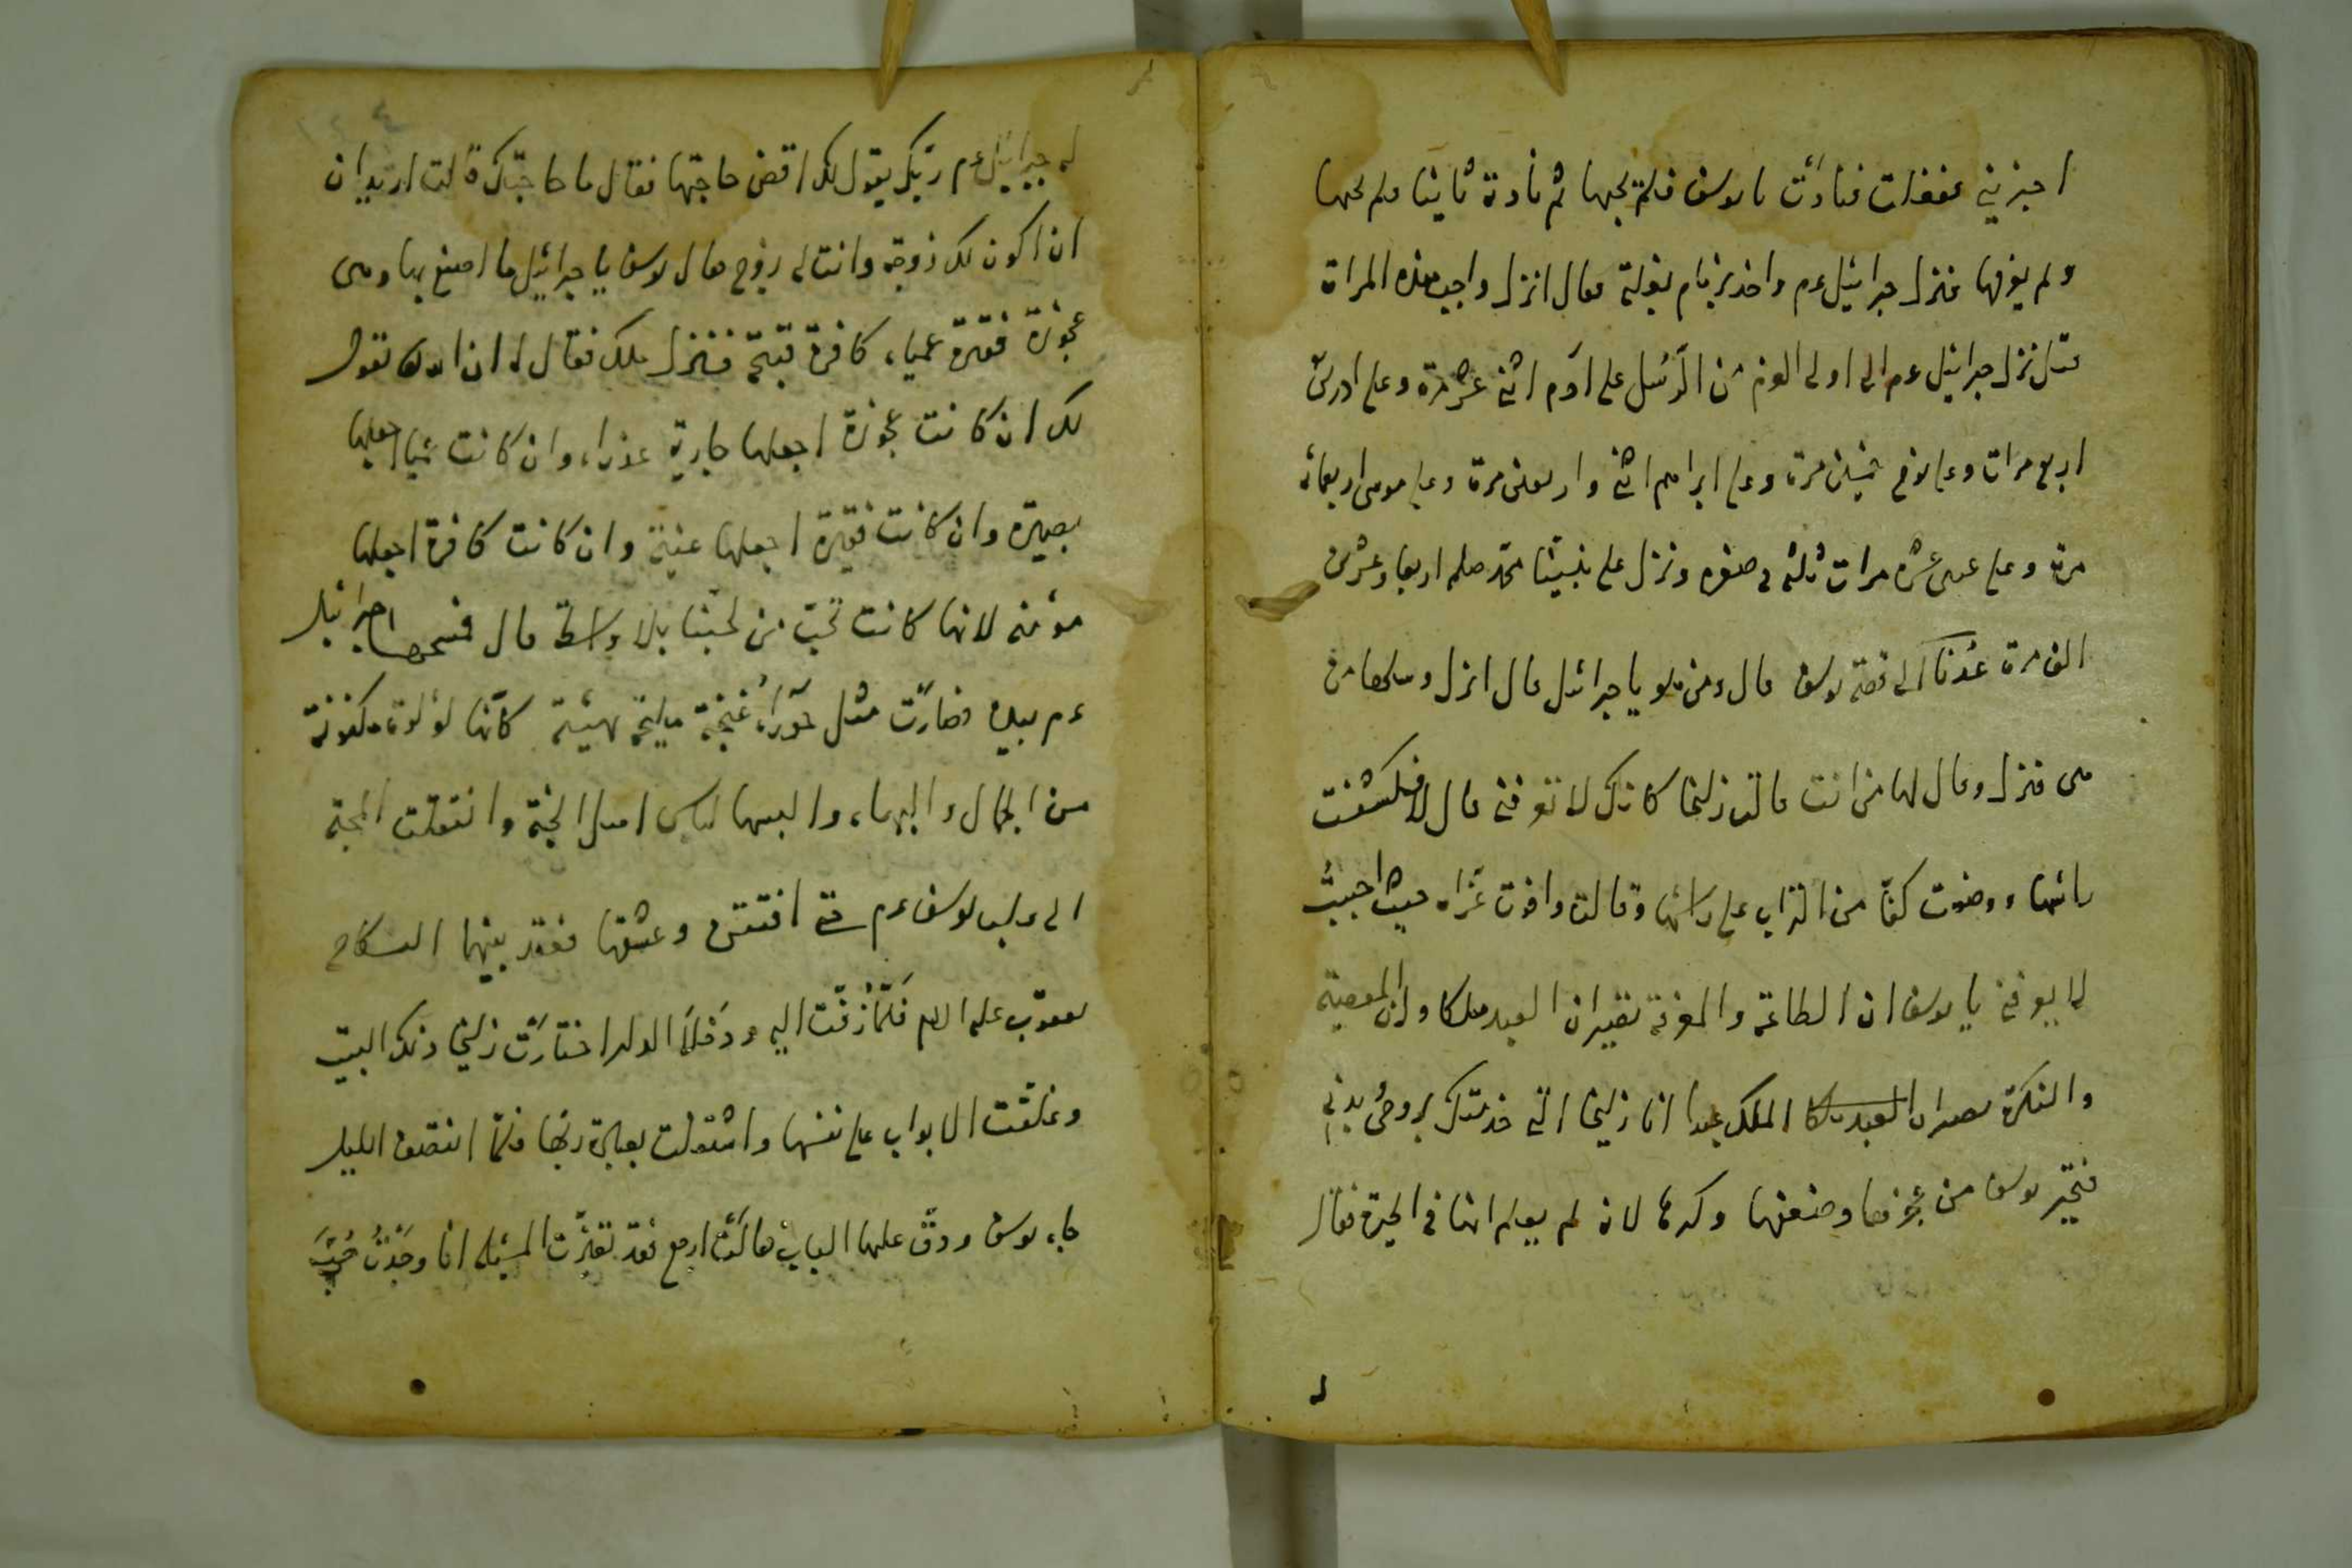 اخبرينى ففعلت فنادَت يا يوسف فلم يجبها ثم نادت ثانيا فلم يجبها
ولم يعرفها فنزل جبرائيل عم واخذ بزمام بغلته فقال انزل واجب هذه المراة
قيل نزل جبرائيل عم الى اولى العزم من الرّسُل على آدم اثنى عشر مرة وعلى ادريس
اربع مرات وعلى نوح خمسين مرة وعلى ابراهيم اثنى واربعين مرة وعلى موسى اربعمائه
مرة وعلى عيسى عشره مرات ثلثه فى صغره ونزل على نبيّنا محمّد صلعم اربعا وعشرين
الف مرة عُدنا الى قصه يوسف قال ومن هو يا جبرائيل قال انزل وسلها من
هى فنزل وقال لها من انت قالت زليخا كانك لا تعرفنى قال لا فكشفت
رائسها ووضعت كفّا من التراب على رائسها وقالت وافوت عمراه حيث احببتُ
لم يعرفنى يا يوسف ان الطاعة والمعرفة تصيران العبد ملكا وان المعصية
والنكرة تصيران الملك عبدا انا زليخا التى خدمتك بروحى وبدنى
فتحير يوسف من عجزها وضعفها وكبرها لانه لم يعلم انها فى الحيوة فقال
له جبرائيل عم ربّك يقول لك اقض حاجتها فقال ما حاجتك قالت اريد ان
ان اكون لك زوجة وانت لى زوج فقال يوسف يا جبرائيل ما اصنع بها وهى
عجوزة فقيرة عمياء كافرة قبيحة فنزل ملك فقال له ان الله يقول
لك ان كانت عجوزة اجعلها جارية عذراء وان كانت عمياء اجعلها
بصيرة وان كانت فقيرة اجعلها غنية وان كانت كافرة اجعلها
مؤمنه لانها كانت تحبّ من يحبّنا بلا واسطة قال فمسحها جبرائيل
عم بيده فصارَت مثل حَورَاءُ غنجة مليحة بهيئة كانّها لؤلؤة مكنونة
من الجمال والبهاء والبسها لباس اهل الجنّة وانتقلت المحبّة
الى قلب يوسف عم حتى افتتن وعشقها فعقد بينهما النكاح
يعقوب عليه السلام فلمّا زُفّت اليه ودَخلَا الدار اختارَت زليخا ذلك البيت
وغلقت الابواب على نفسها واشتغلت بعبادة ربّها فلمّا انتصف الليل
جاء يوسف ودقّ عليها الباب فقالَت ارجع فقد تغيّرَت المسئلة انا وجَدْتُ حُبَّ